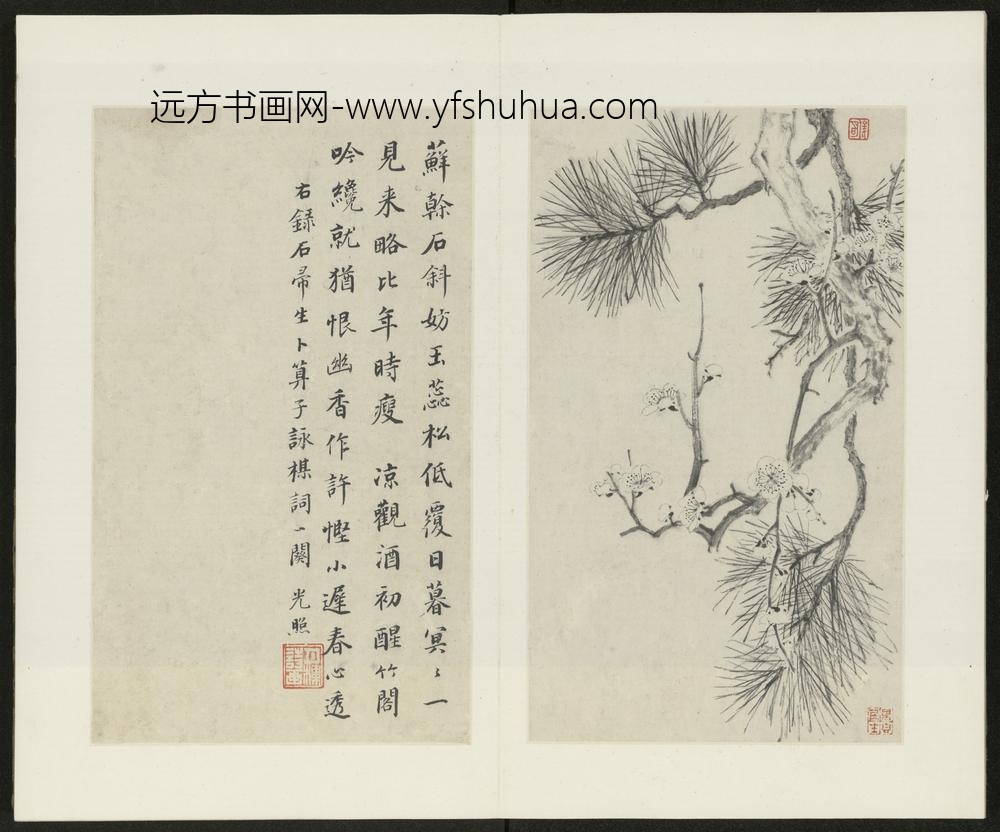 远方书画网-www.yfshuhua.com
蘚幹石斜妨玉蕊松低覆日暮冥〻一
見来略比年時瘦 凉觀酒初醒竹閣
吟纔就猶恨幽香作許慳小遲春心透
右錄石帚生卜算子詠楳詞一闋 光照